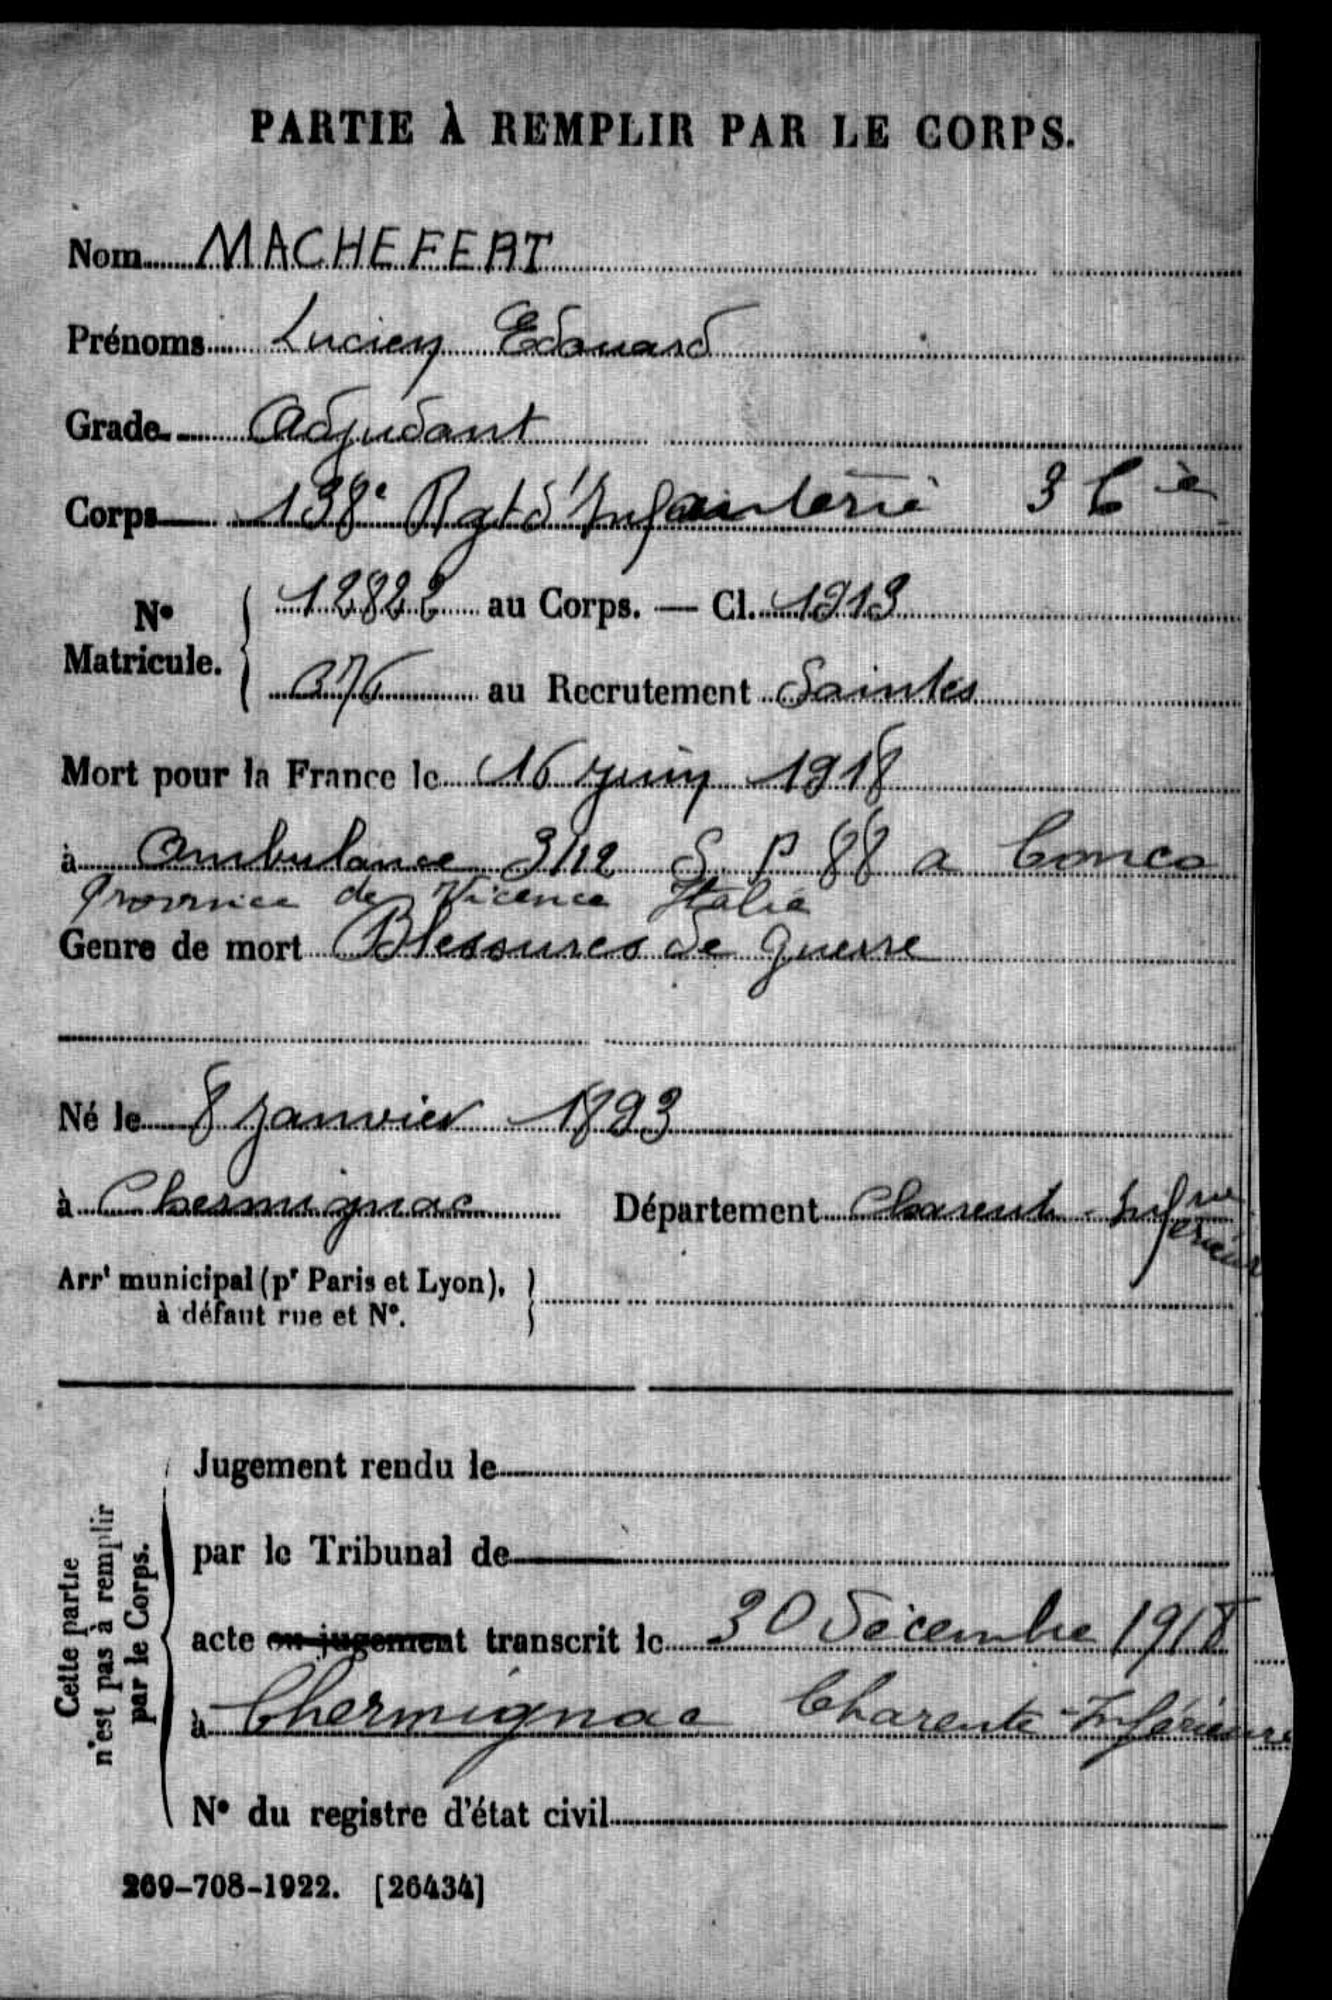 PARTIE À REMPLIR PAR LE CORPS.
Nom MACHEFERT
Prénoms Lucien Edouard
Grade Adjudant
Corps 138e Rgt d'Infanterie 3 Cie
N° Matricule. { 12822 au Corps. — Cl. 1913
376 au Recrutement Saintes
Mort pour la France le 16 juin 1918
à Ambulance 3/12 S. P 88 a Conco
Province de Vicence Italie
Genre de mort Blessures de guerre
Né le 8 janvier 1893
à Chermignac Département Charente-Inférieure
Arrt municipal (pr Paris et Lyon), à défaut rue et N°.
Cette partie n'est pas à remplir par le Corps.
Jugement rendu le
par le Tribunal de
acte ou jugement transcrit le 30 Décembre 1918
à Chermignac Charente-Inférieure
N° du registre d'état civil
269-708-1922. [26434]